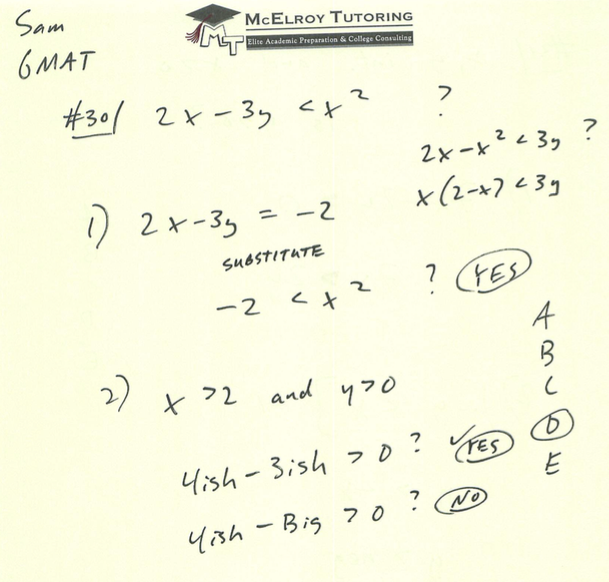 Sam
GMAT
McELROY TUTORING
MT
Elite Academic Preparation & College Consulting
#301 2x - 3y < x² ?
2x - x² < 3y ?
x(2-x) < 3y
1) 2x - 3y = -2
SUBSTITUTE
-2 < x² ? YES
A
B
C
D
E
2) x > 2 and y > 0
4ish - 3ish > 0 ? ✓YES
4ish - Big > 0 ? NO